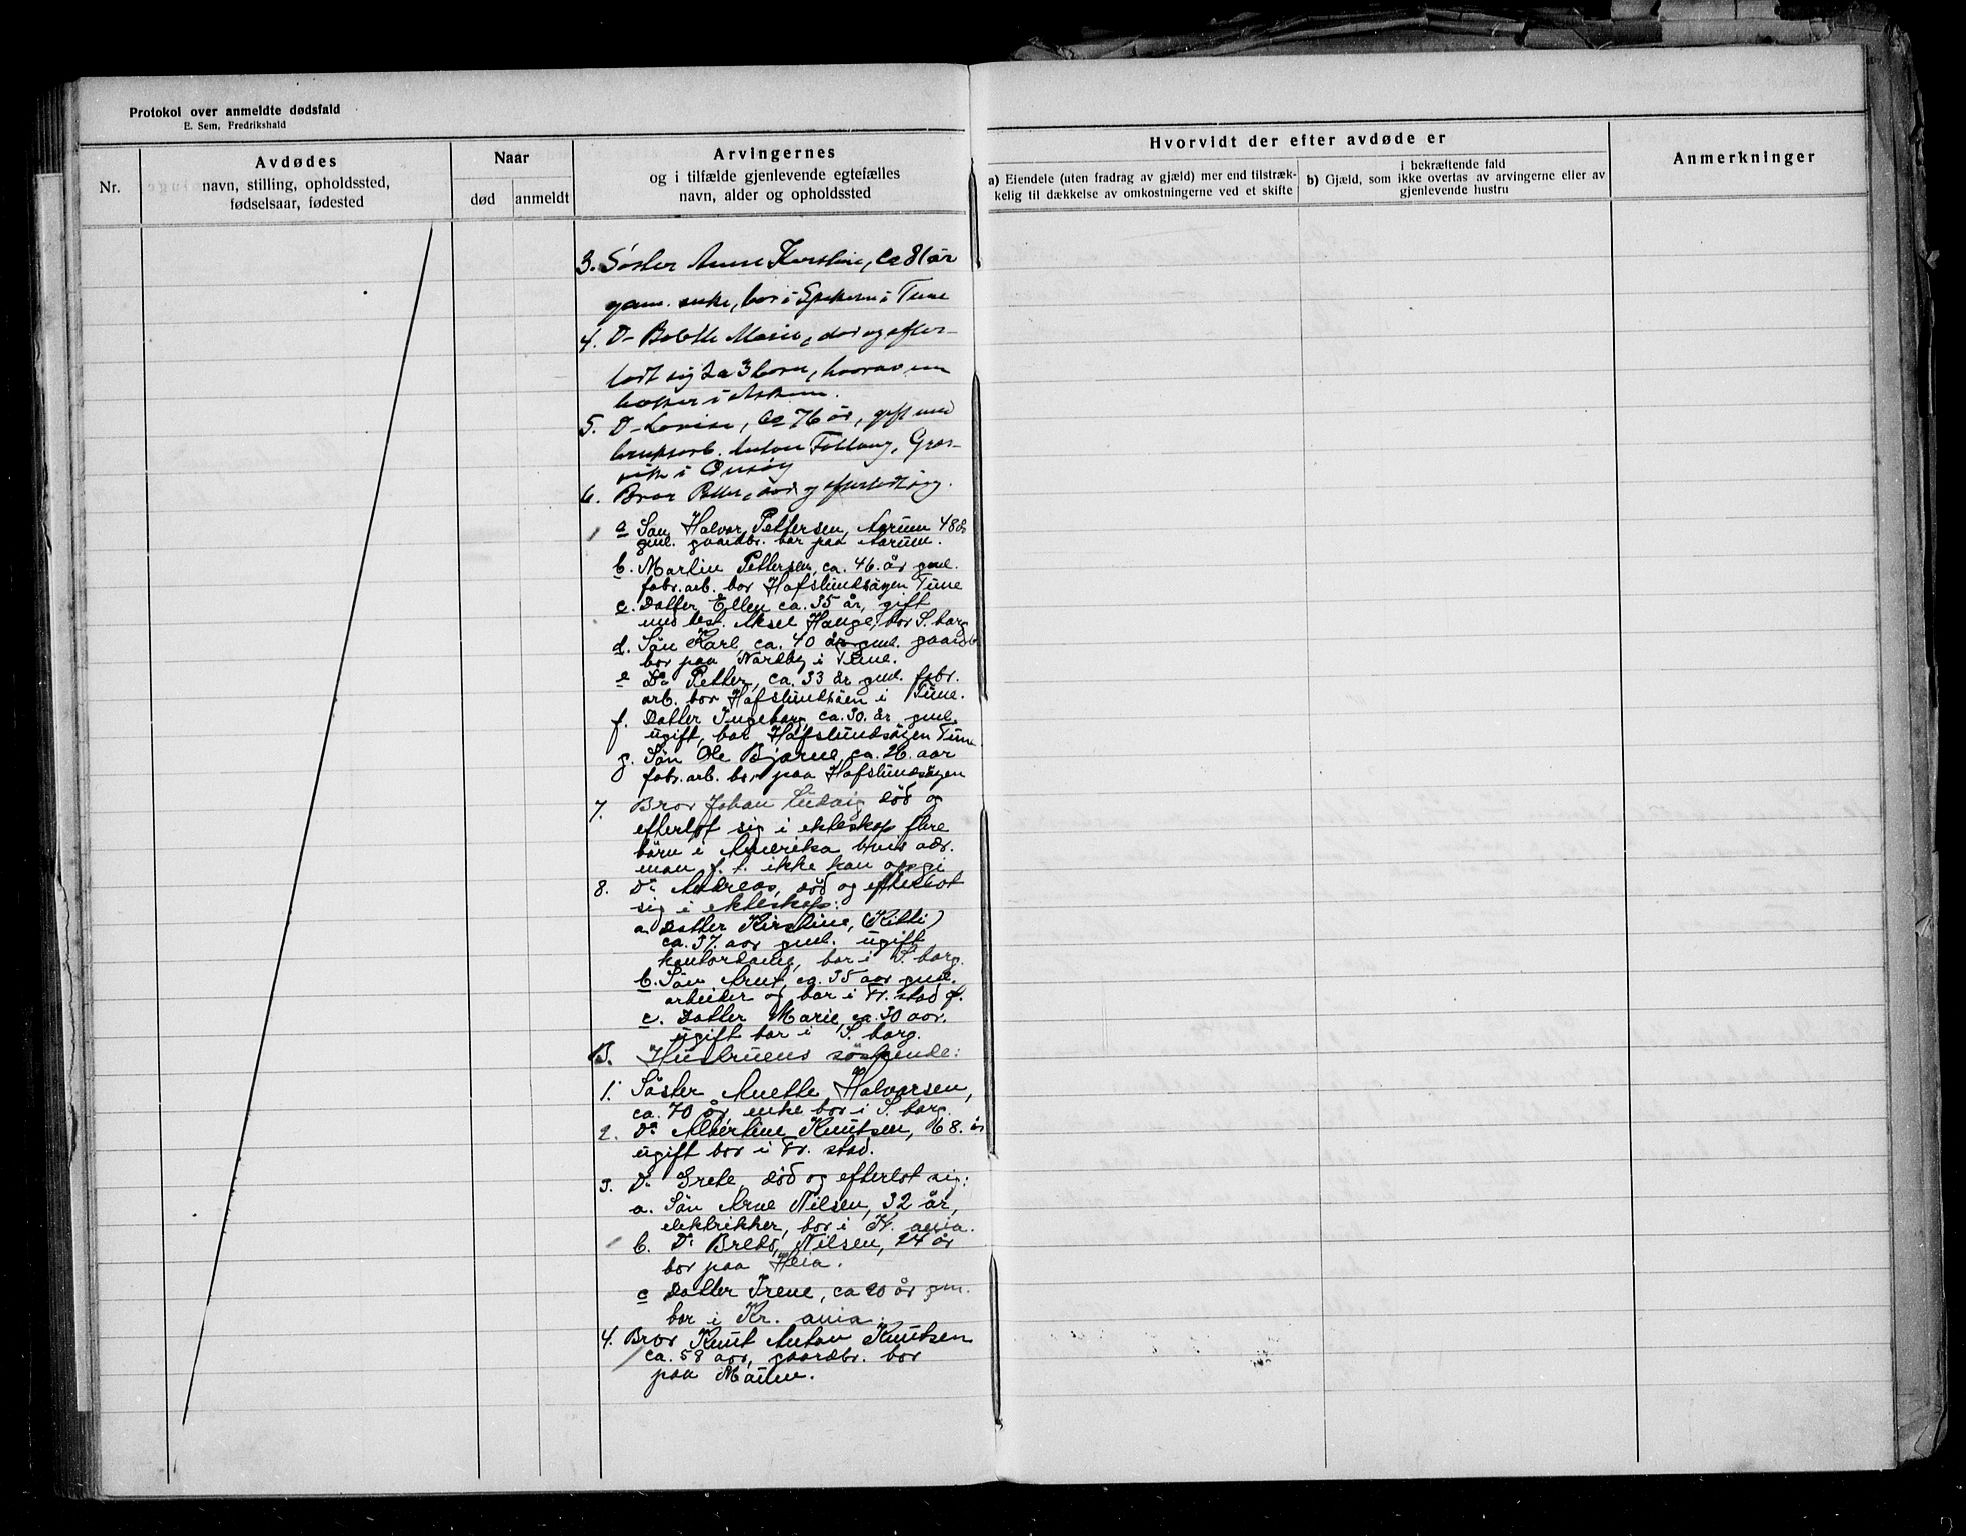 Protokol over anmeldte dødsfald
E. Sem, Fredrikshald
Nr.
Avdødes
navn, stilling, opholdssted,
fødselsaar, fødested
Naar
død
anmeldt
Arvingernes
og i tilfælde gjenlevende egtefælles
navn, alder og opholdssted
Hvorvidt der efter avdøde er
a) Eiendele (uten fradrag av gjæld) mer end tilstræk-
kelig til dækkelse av omkostningerne ved et skifte
i bekræftende fald
b) Gjæld, som ikke overtas av arvingerne eller av
gjenlevende hustru
Anmerkninger
3. Søster Anne Kerstine, ca 81 år
gam. enke, bor i i Tune
4. D- Bolette Marie, død og efter-
lodt sig 2 a 3 born, hvorav en
datter i Askim.
5. D- Lovise, ca 76 år, gift med
bruksarb. Anton, Græs-
vik i Onsøy
6. Bror Petter, død og efterlodt sig.
a Søn Halvor Pettersen, Aarum 48 år
gml. gaardbr. bor paa Aarum.
b. Martin Pettersen, ca. 46. år gml.
fabr. arb. bor Hafslundsøyen Tune
c. Datter Ellen ca. 35 år, gift
med best. Aksel Hauge, bor S. borg
d. Søn Karl, ca. 40 år gml. gaardb
bor paa Nordby i Tune.
e Do Petter, ca. 33 år gml. fabr.
arb. bor Hafslundsøen i Tune.
f. Datter Ingeborg, ca. 30. år gml.
ugift, bor Hafslundsøyen Tune
g. Søn Ole Bjarne, ca. 26. aar
fabr. arb. bor paa Hafslundsøyen
7. Bror Johan Ludvig død og
efterlot sig i ekteskap flere
børn i Amerika hvis adr.
man f. t. ikke kan opgi
8. Do Andreas, død og efterlot
sig i ekteskap:
a. Datter Kirstine, (Kitti)
ca. 37. aar gml. ugift
kontordame, bor i S. borg.
b. Søn Arnt, ca. 35 aar gml.
arbeider og bor i Fr. stad g.
c. Datter Marie, ca. 30 aar.
ugift bor i S. borg.
B. Hustruens søskende:
1. Søster Anette Halvorsen,
ca. 70 år, enke bor i S. borg.
2. Do Albertine Knutsen, 68. år
ugift bor i Fr. stad.
3. Do Grete, død og efterlot sig:
a. Søn Arne Nilsen, 32 år,
elektrikker, bor i Kr. ania.
b. Do Nilsen, 24 år
bor paa Heia.
c Datter Irene, ca 20 år gm.
bor i Kr. ania.
4. Bror Knut Anton Knutsen
ca. 58 aar, gaardbr. bor
paa